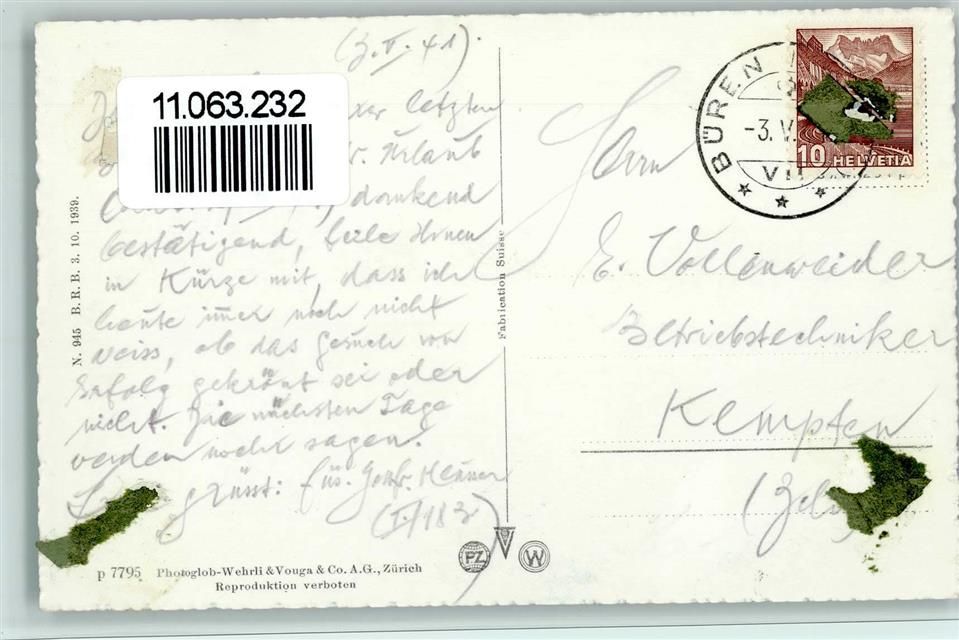 (3. V. 41).
11.063.232
letzten
Urlaub
dankend
bestätigend, teile Ihnen
in Kürze mit, dass ich
heute immer noch nicht
weiss, ob das Gesuch von
Erfolg gekrönt sei oder
nicht. Die nächsten Tage
werden mehr sagen.
grüsst: Füs.
(I/183)
N. 945 B. R. B. 3. 10. 1939.
p 7795 Photoglob-Wehrli & Vouga & Co. A.G., Zürich
Reproduktion verboten
Fabrication Suisse
PZ
V
W
BÜREN
-3. V.
VII
10 HELVETIA
Herrn
E. Vollenweider
Betriebstechniker
Kempten